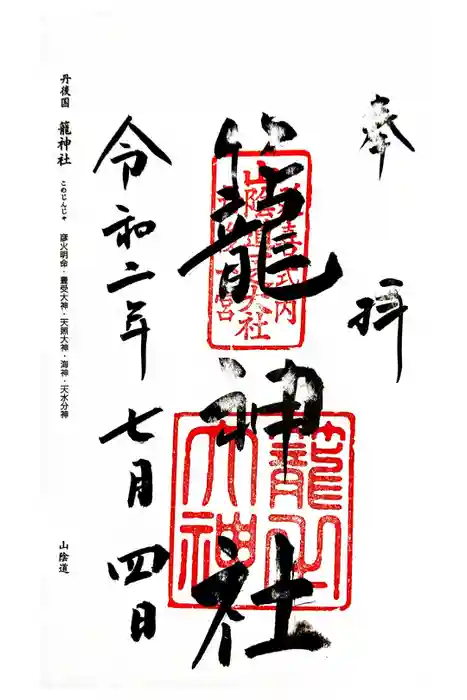 奉拝
延喜式内
籠神社
令和二年七月四日
丹後国 籠神社 このじんじゃ 彦火明命・豊受大神・天照大神・海神・天水分神 山陰道